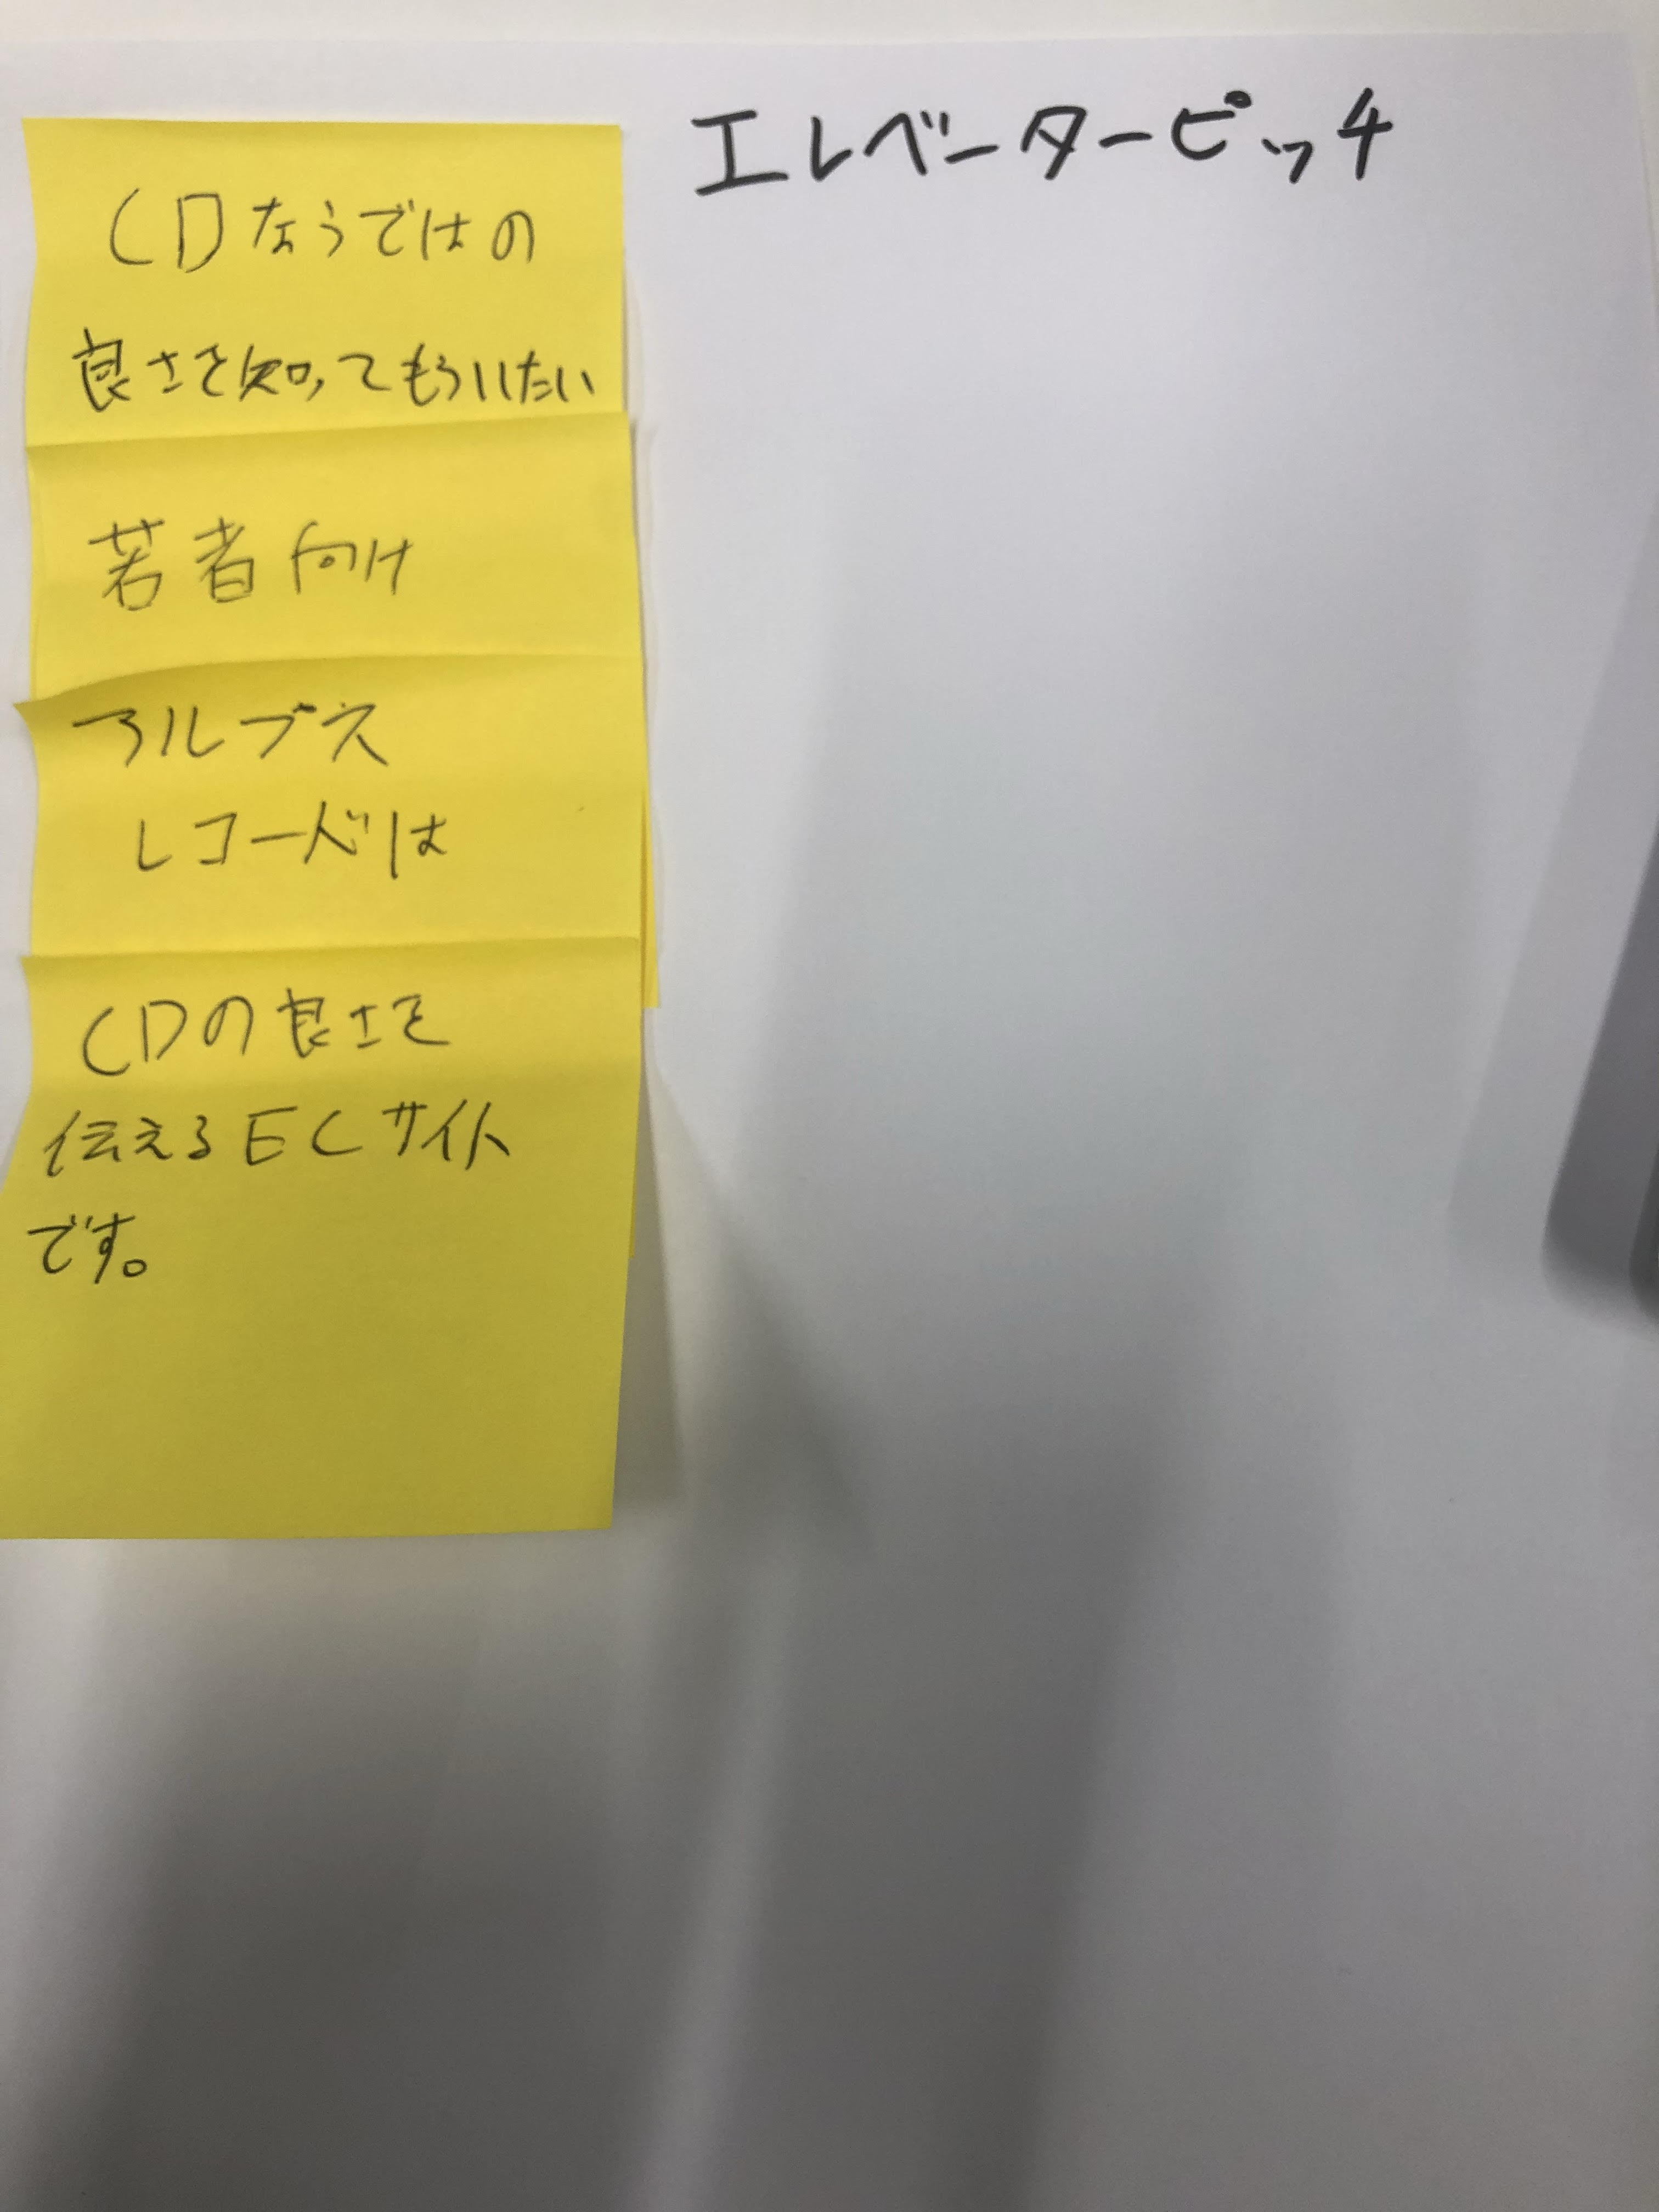 エレベーターピッチ
CDならではの
良さを知ってもらいたい
若者向け
アルプス
レコードは
CDの良さを
伝えるECサイト
です。